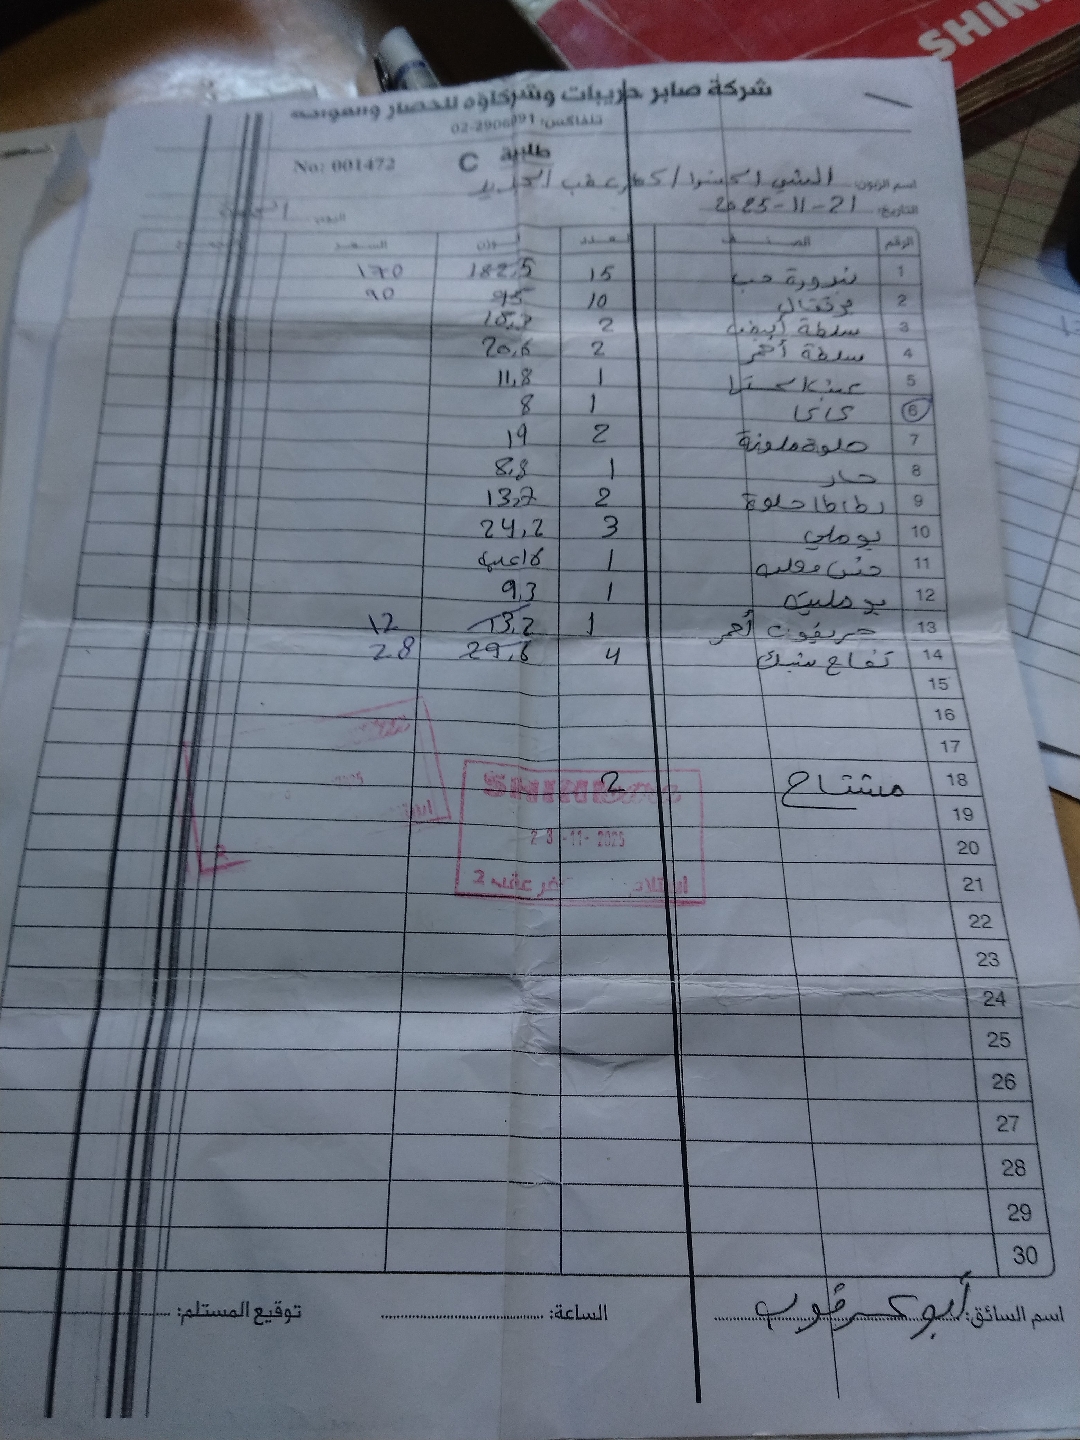 SHIN
شركة صابر حريبات وشركاؤه للخضار والفواكه
تلفاكس: 02-2906891
طلبية C
No: 001472
اسم الزبون: الشني اكسترا / كفر عقب الجديد
التاريخ: 21-11-2025 اليوم: الجمعة
الرقم الصنف العدد الوزن السعر
1 بندورة حب 15 182,5 170
2 برتقال 10 95 90
3 سلطة أبيض 2
4 سلطة أحمر 2 20,6
5 1 11,8
6 كاكا 1 8
7 حلوة ملونة 2 19
8 حار 1 8,8
9 بطاطا حلوة 2 13,7
10 بوملي 3 24,2
11 1
12 1 9,3
13 جريفوت أحمر 1 13,2 12
14 تفاح سنبك 4 29,6 28
15
16
17
18 مشتاح 2
19
20
21
22
23
24
25
26
27
28
29
30
23-11-2025
استلام كفر عقب 2
اسم السائق: الساعة: توقيع المستلم: